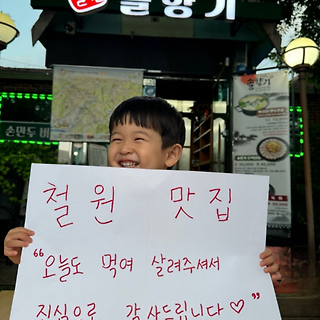 솔향기
손만두
솔향기
철원 맛집
"오늘도 먹여 살려주셔서
진심으로 감사드립니다♡"